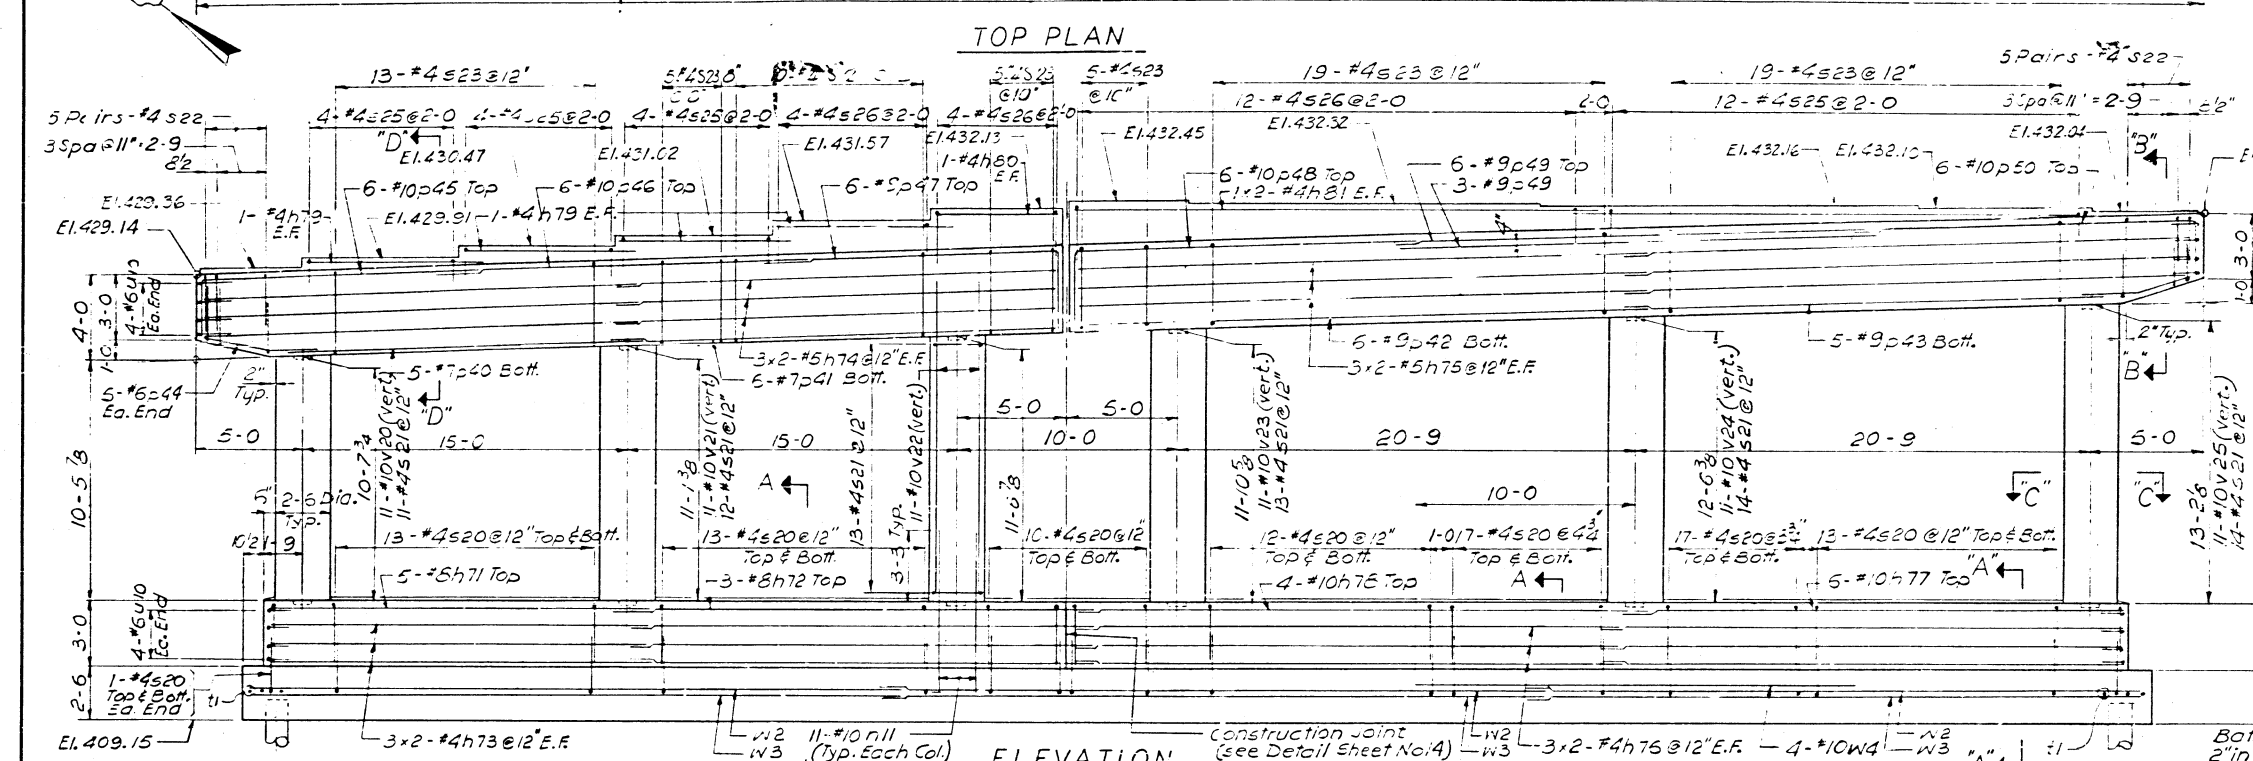 TOP PLAN
5 Pairs - #4 s22
13-#4s23@12"
5-#4s23
@10"
5-#4s23
@10"
19-#4s23@12"
19-#4s23@12"
5 Pairs - #4 s22
3 Spa@11"=2-9
8½
4-#4s25@2-0
4-#4s25@2-0
4-#4s25@2-0
4-#4s26@2-0
4-#4s26@2-0
12-#4s26@2-0
2-0
12-#4s25@2-0
3Spa@11"=2-9
8½"
"D"
El.430.47
El.431.02
El.431.57
El.432.13
El.432.45
El.432.32
El.432.16
El.432.10
El.432.04
"B"
1-#4h80
E.F.
6-#10p45 Top
6-#10p46 Top
6-#9p47 Top
6-#10p48 Top
1x2-#4h81 E.F.
6-#9p49 Top
3-#9p49
6-#10p50 Top
El.429.36
El.429.14
1-#4h79
E.F.
El.429.91
1-#4h79 E.F.
4"
4-0
3-0
1-0
4-#6u10
Ea.End
3-0
1-0
5-#6p44
Ea. End
2"
Typ.
5-#7p40 Bott.
3x2-#5h74@12"E.F.
6-#7p41 Bott.
6-#9p42 Bott.
3x2-#5h75@12"E.F.
5-#9p43 Bott.
2"Typ.
"B"
"D"
5-0
15-0
15-0
5-0
5-0
10-0
20-9
20-9
5-0
10-5⅞
10-7¾
11-#10v20(vert.)
11-#4s21@12"
11-1⅜
11-#10v21(vert.)
12-#4s21@12"
13-#4s21@12"
11-#10v22(vert.)
3-3 Typ.
11-0⅞
11-10⅝
11-#10v23(vert.)
13-#4s21@12"
12-6⅜
11-#10v24(vert.)
14-#4s21@12"
13-2⅛
11-#10v25(vert.)
14-#4s21@12"
5"
2-6 Dia.
Typ.
A
10-0
"C"
"C"
10½
1-9
13-#4s20@12"Top&Bott.
13-#4s20@12"
Top & Bott.
10-#4s20@12"
Top & Bott.
12-#4s20@12"
Top & Bott.
1-0
17-#4s20@4¾"
Top & Bott.
17-#4s20@
Top & Bott.
13-#4s20@12"Top&Bott.
5-#8h71 Top
3-#8h72 Top
4-#10h76 Top
A
5-#10h77 Top
"A"
3-0
4-#6u10
Ea.End
2-6
1-#4s20
Top & Bott.
Ea. End
t1
El.409.15
3x2-#4h73@12"E.F.
W2
W3
11-#10n11
(Typ. Each Col.)
ELEVATION
Construction Joint
(see Detail Sheet No.14)
W2
W3
3x2-#4h76@12"E.F.
4-#10W4
W2
W3
"A"
t1
2"in